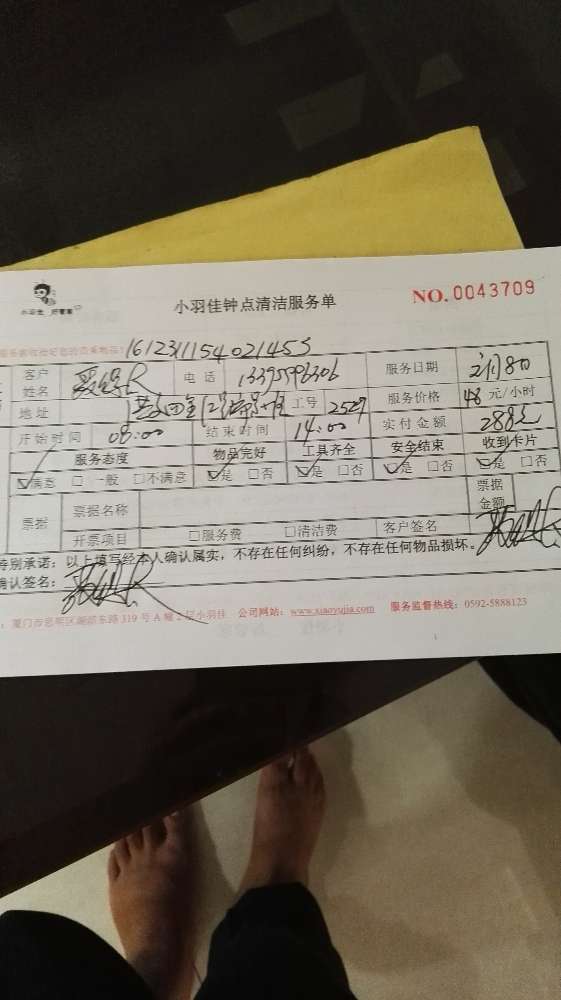 小羽佳 好管家
小羽佳钟点清洁服务单
NO. 0043709
161231154021453
客户姓名 电话 13395998306 服务日期 2月8日
地址 工号 2529 服务价格 48 元/小时
开始时间 08:00 结束时间 14:00 实付金额 288元
服务态度 物品完好 工具齐全 安全结束 收到卡片
☑满意 □一般 □不满意 ☑是 □否 ☑是 □否 ☑是 □否 ☑是 □否
票据 票据名称 票据金额
开票项目 □服务费 □清洁费 客户签名
特别承诺:以上填写经本人确认属实,不存在任何纠纷,不存在任何物品损坏。
确认签名:
:厦门市思明区湖滨东路 319 号 A 幢 2 层小羽佳 公司网站:www.xiaoyujia.com 服务监督热线:0592-5888123